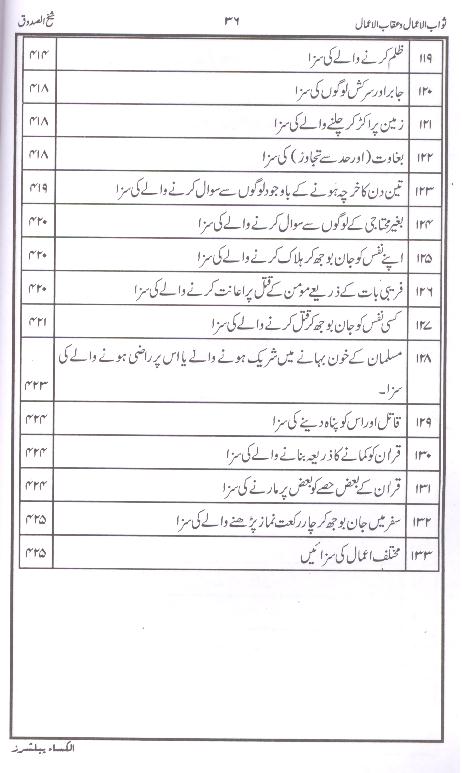 ثواب الاعمال و عقاب الاعمال ۳۶ شیخ الصدوق
۱۱۹ ظلم کرنے والے کی سزا ۴۱۴
۱۲۰ جابر اور سرکش لوگوں کی سزا ۴۱۸
۱۲۱ زمین پر اکڑ کر چلنے والے کی سزا ۴۱۸
۱۲۲ بغاوت (اور حد سے تجاوز) کی سزا ۴۱۸
۱۲۳ تین دن کا خرچہ ہونے کے باوجود لوگوں سے سوال کرنے والے کی سزا ۴۱۹
۱۲۴ بغیر محتاجی کے لوگوں سے سوال کرنے والے کی سزا ۴۲۰
۱۲۵ اپنے نفس کو جان بوجھ کر ہلاک کرنے والے کی سزا ۴۲۰
۱۲۶ فریبی بات کے ذریعے مومن کے قتل پر اعانت کرنے والے کی سزا ۴۲۰
۱۲۷ کسی نفس کو جان بوجھ کر قتل کرنے والے کی سزا ۴۲۱
۱۲۸ مسلمان کے خون بہانے میں شریک ہونے والے یا اس پر راضی ہونے والے کی
سزا۔ ۴۲۳
۱۲۹ قاتل اور اس کو پناہ دینے کی سزا ۴۲۴
۱۳۰ قران کو کمانے کا ذریعہ بنانے والے کی سزا ۴۲۴
۱۳۱ قران کے بعض حصے کو بعض پر مارنے کی سزا ۴۲۴
۱۳۲ سفر میں جان بوجھ کر چار رکعت نماز پڑھنے والے کی سزا ۴۲۵
۱۳۳ مختلف اعمال کی سزائیں ۴۲۵
الکساء پبلشرز